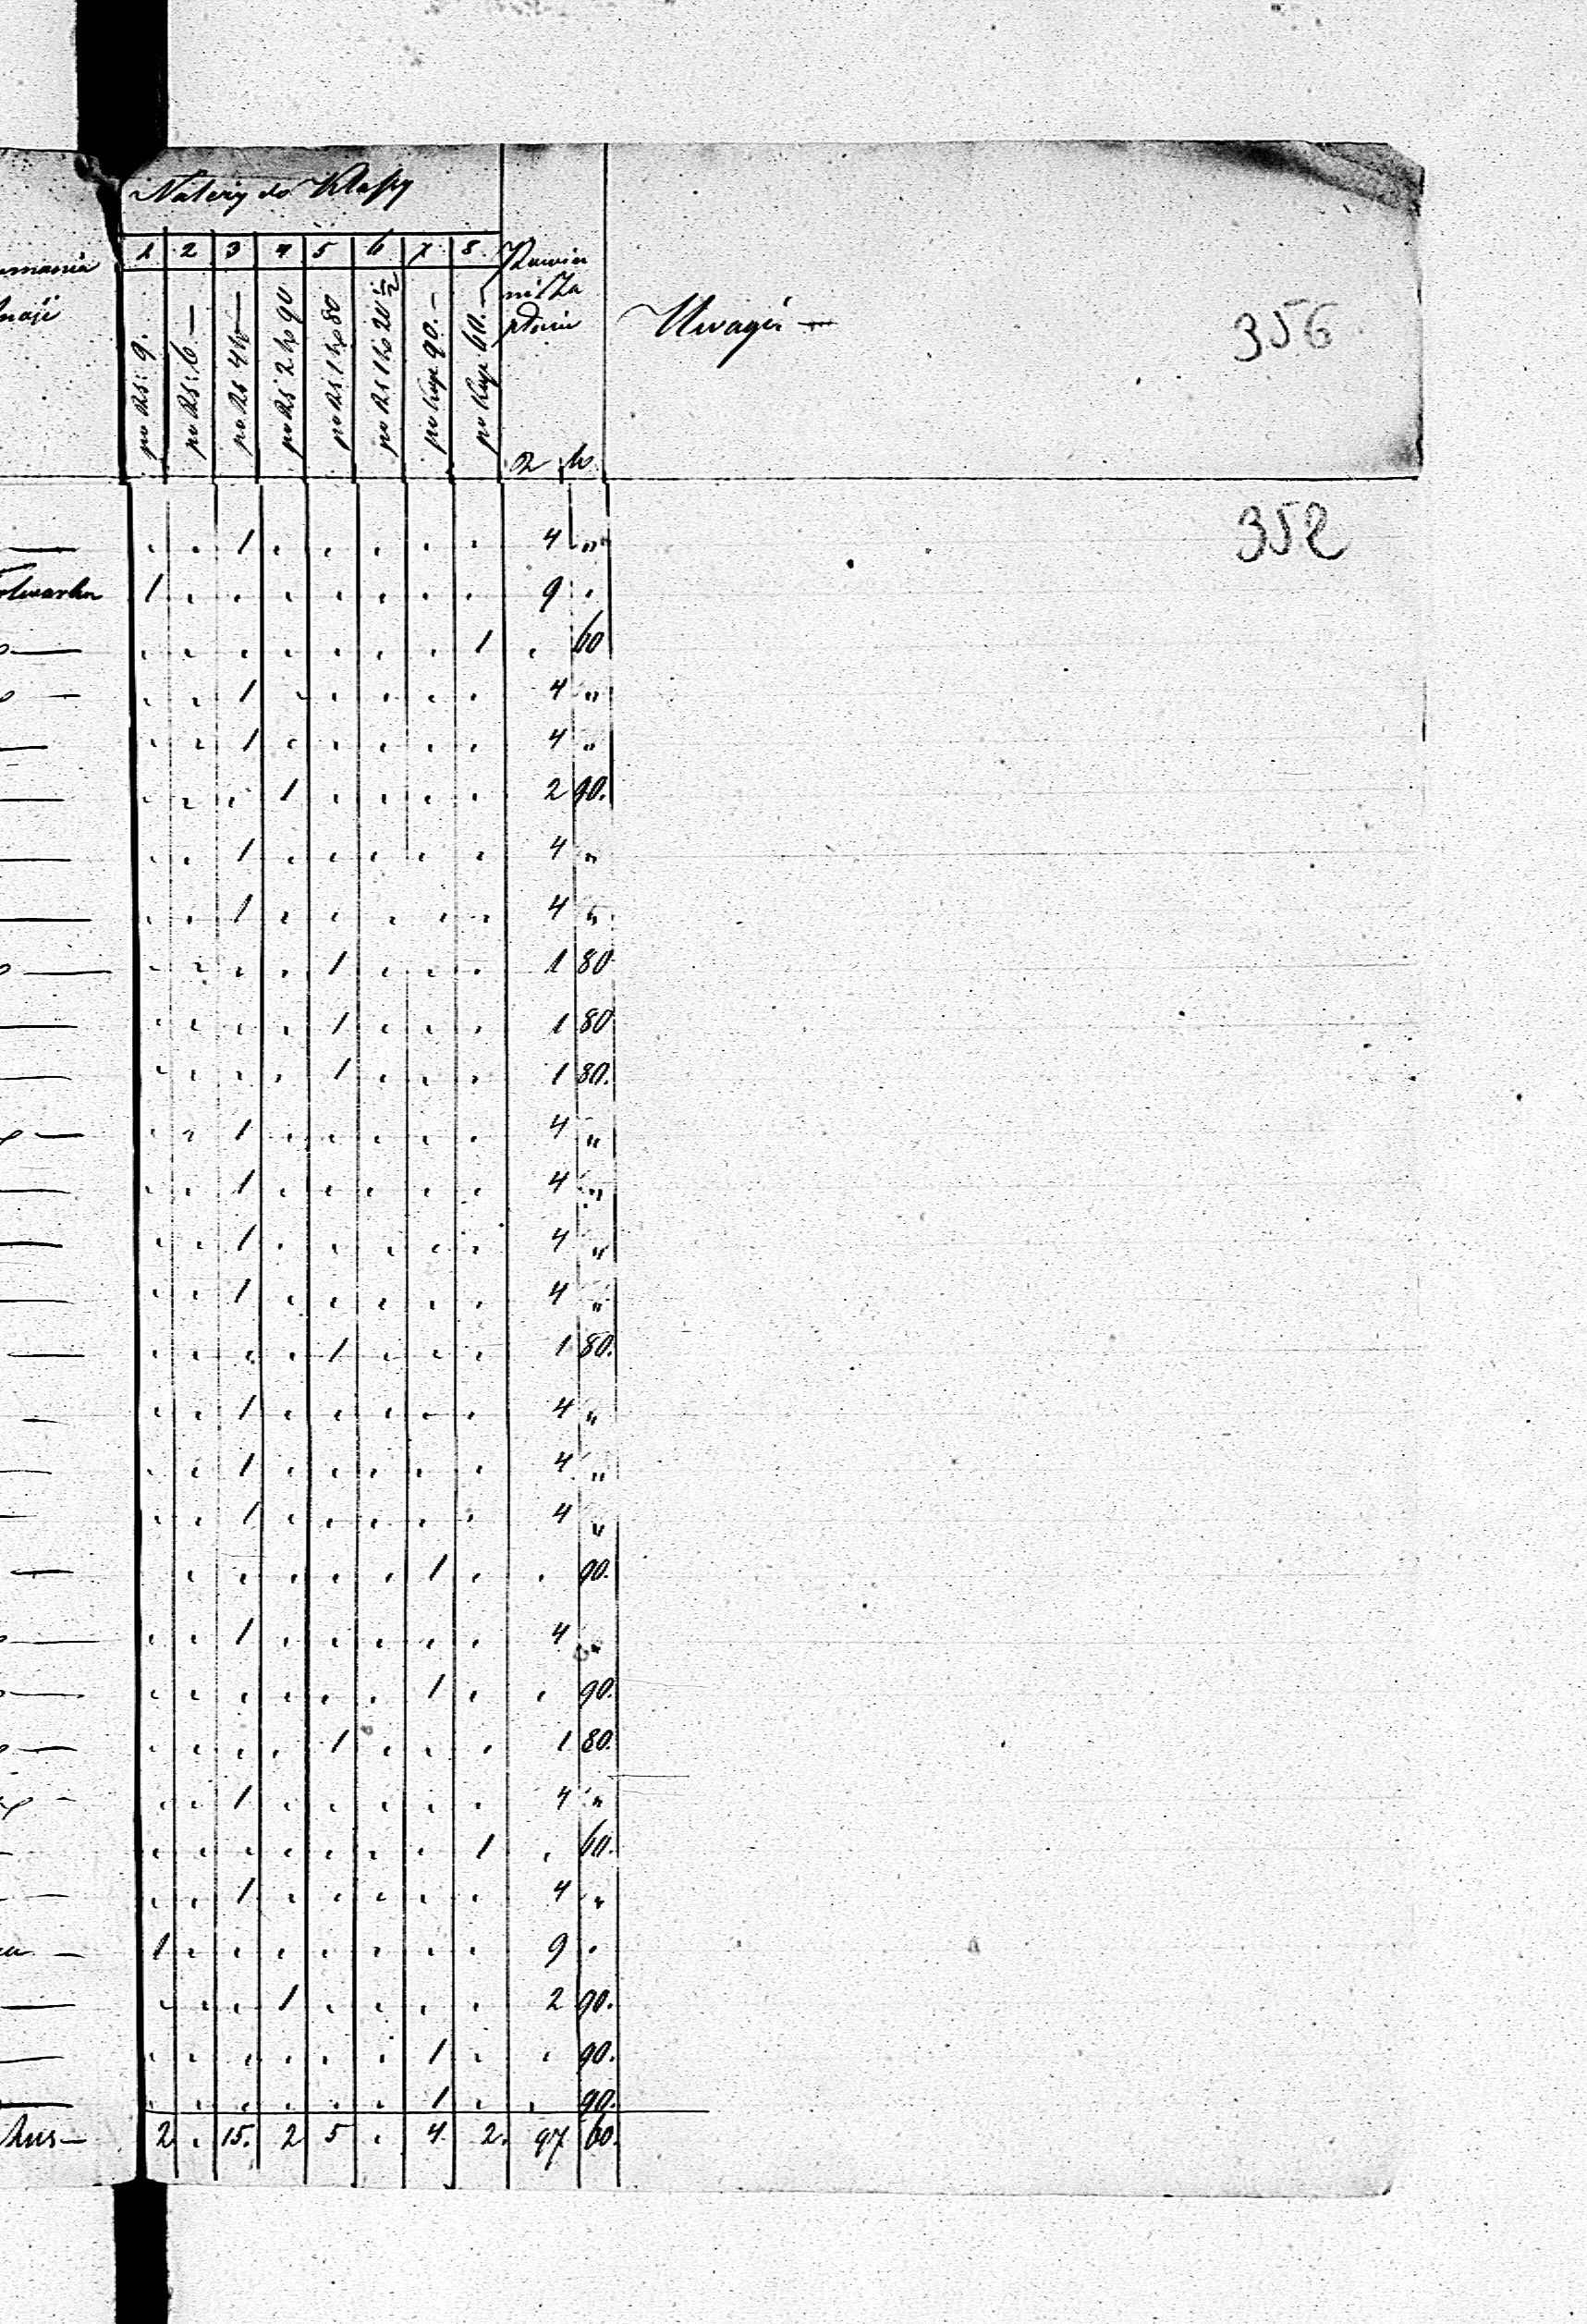 Należy do Klassy
1 2 3 4 5 6 7 8
po RS: 9.
po RS: 6 —
po RS 4 k —
po RS 2 ko 90
po RS 1 ko 80
po RS 1 ko 20 1/2
po Kop 90. —
po Kop 60. —
Powin
R k
Uwagi —
356
352
. . 1 . . . . . 4 "
folwarku 1 . . . . . . . 9 .
. . . . . . . 1 . 60
. . 1 . . . . . 4 "
. . 1 . . . . . 4 "
. . . 1 . . . . 2 90.
. . 1 . . . . . 4 "
. . 1 . . . . . 4 "
. . . . 1 . . . 1 80
. . . . 1 . . . 1 80
. . . . 1 . . . 1 80.
. . 1 . . . . . 4 "
. . 1 . . . . . 4 "
. . 1 . . . . . 4 "
. . 1 . . . . . 4 "
. . . . 1 . . . 1 80.
. . 1 . . . . . 4 "
. . 1 . . . . . 4 "
. . 1 . . . . . 4 "
. . . . . 1 . . 90.
. . 1 . . . . . 4 "
. . . . . . 1 . . 90.
. . . . 1 . . . 1 80.
. . 1 . . . . . 4 "
. . . . . . . 1 . 60.
. . 1 . . . . . 4 "
1 . . . . . . . 9 .
. . . 1 . . . . 2 90.
. . . . . . 1 . . 90.
. . . . . . 1 . . 90.
2 . 15. 2 5 . 4 2. 97 60.